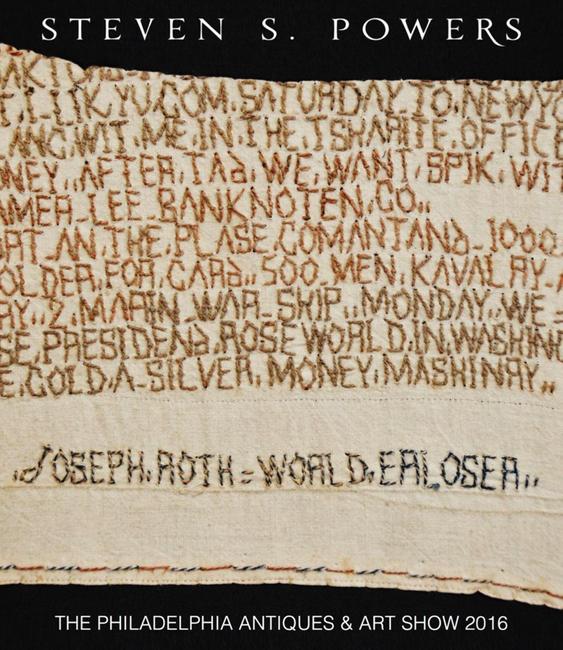 STEVEN S. POWERS
T.I-ITK.YU.COM.SATURDAY.TO.NEWYO
ANC.WIT.ME.IN.THE.TSHARITE.OFFICE
NEY,,AFTER.TAd.WE.WANT.SPIK.WIT
AMER-LEE.BANKNOTEN.CO,,
ART_AN.THE.PLASE.COMANTANd-1000
OLDER.FOR.CARd,,500 MEN.KAVALRY-
RY.,2.MARIN_WAR-SHIP,,MONDAY,,WE=
SE.PRESIDENd.ROSEWORLD.IN.WASHIN
E.GOLD.A-SILVER.MONEY.MASHINRY,,
,,JOSEPH.ROTH=WORLD.ERLOSER,,
THE PHILADELPHIA ANTIQUES & ART SHOW 2016